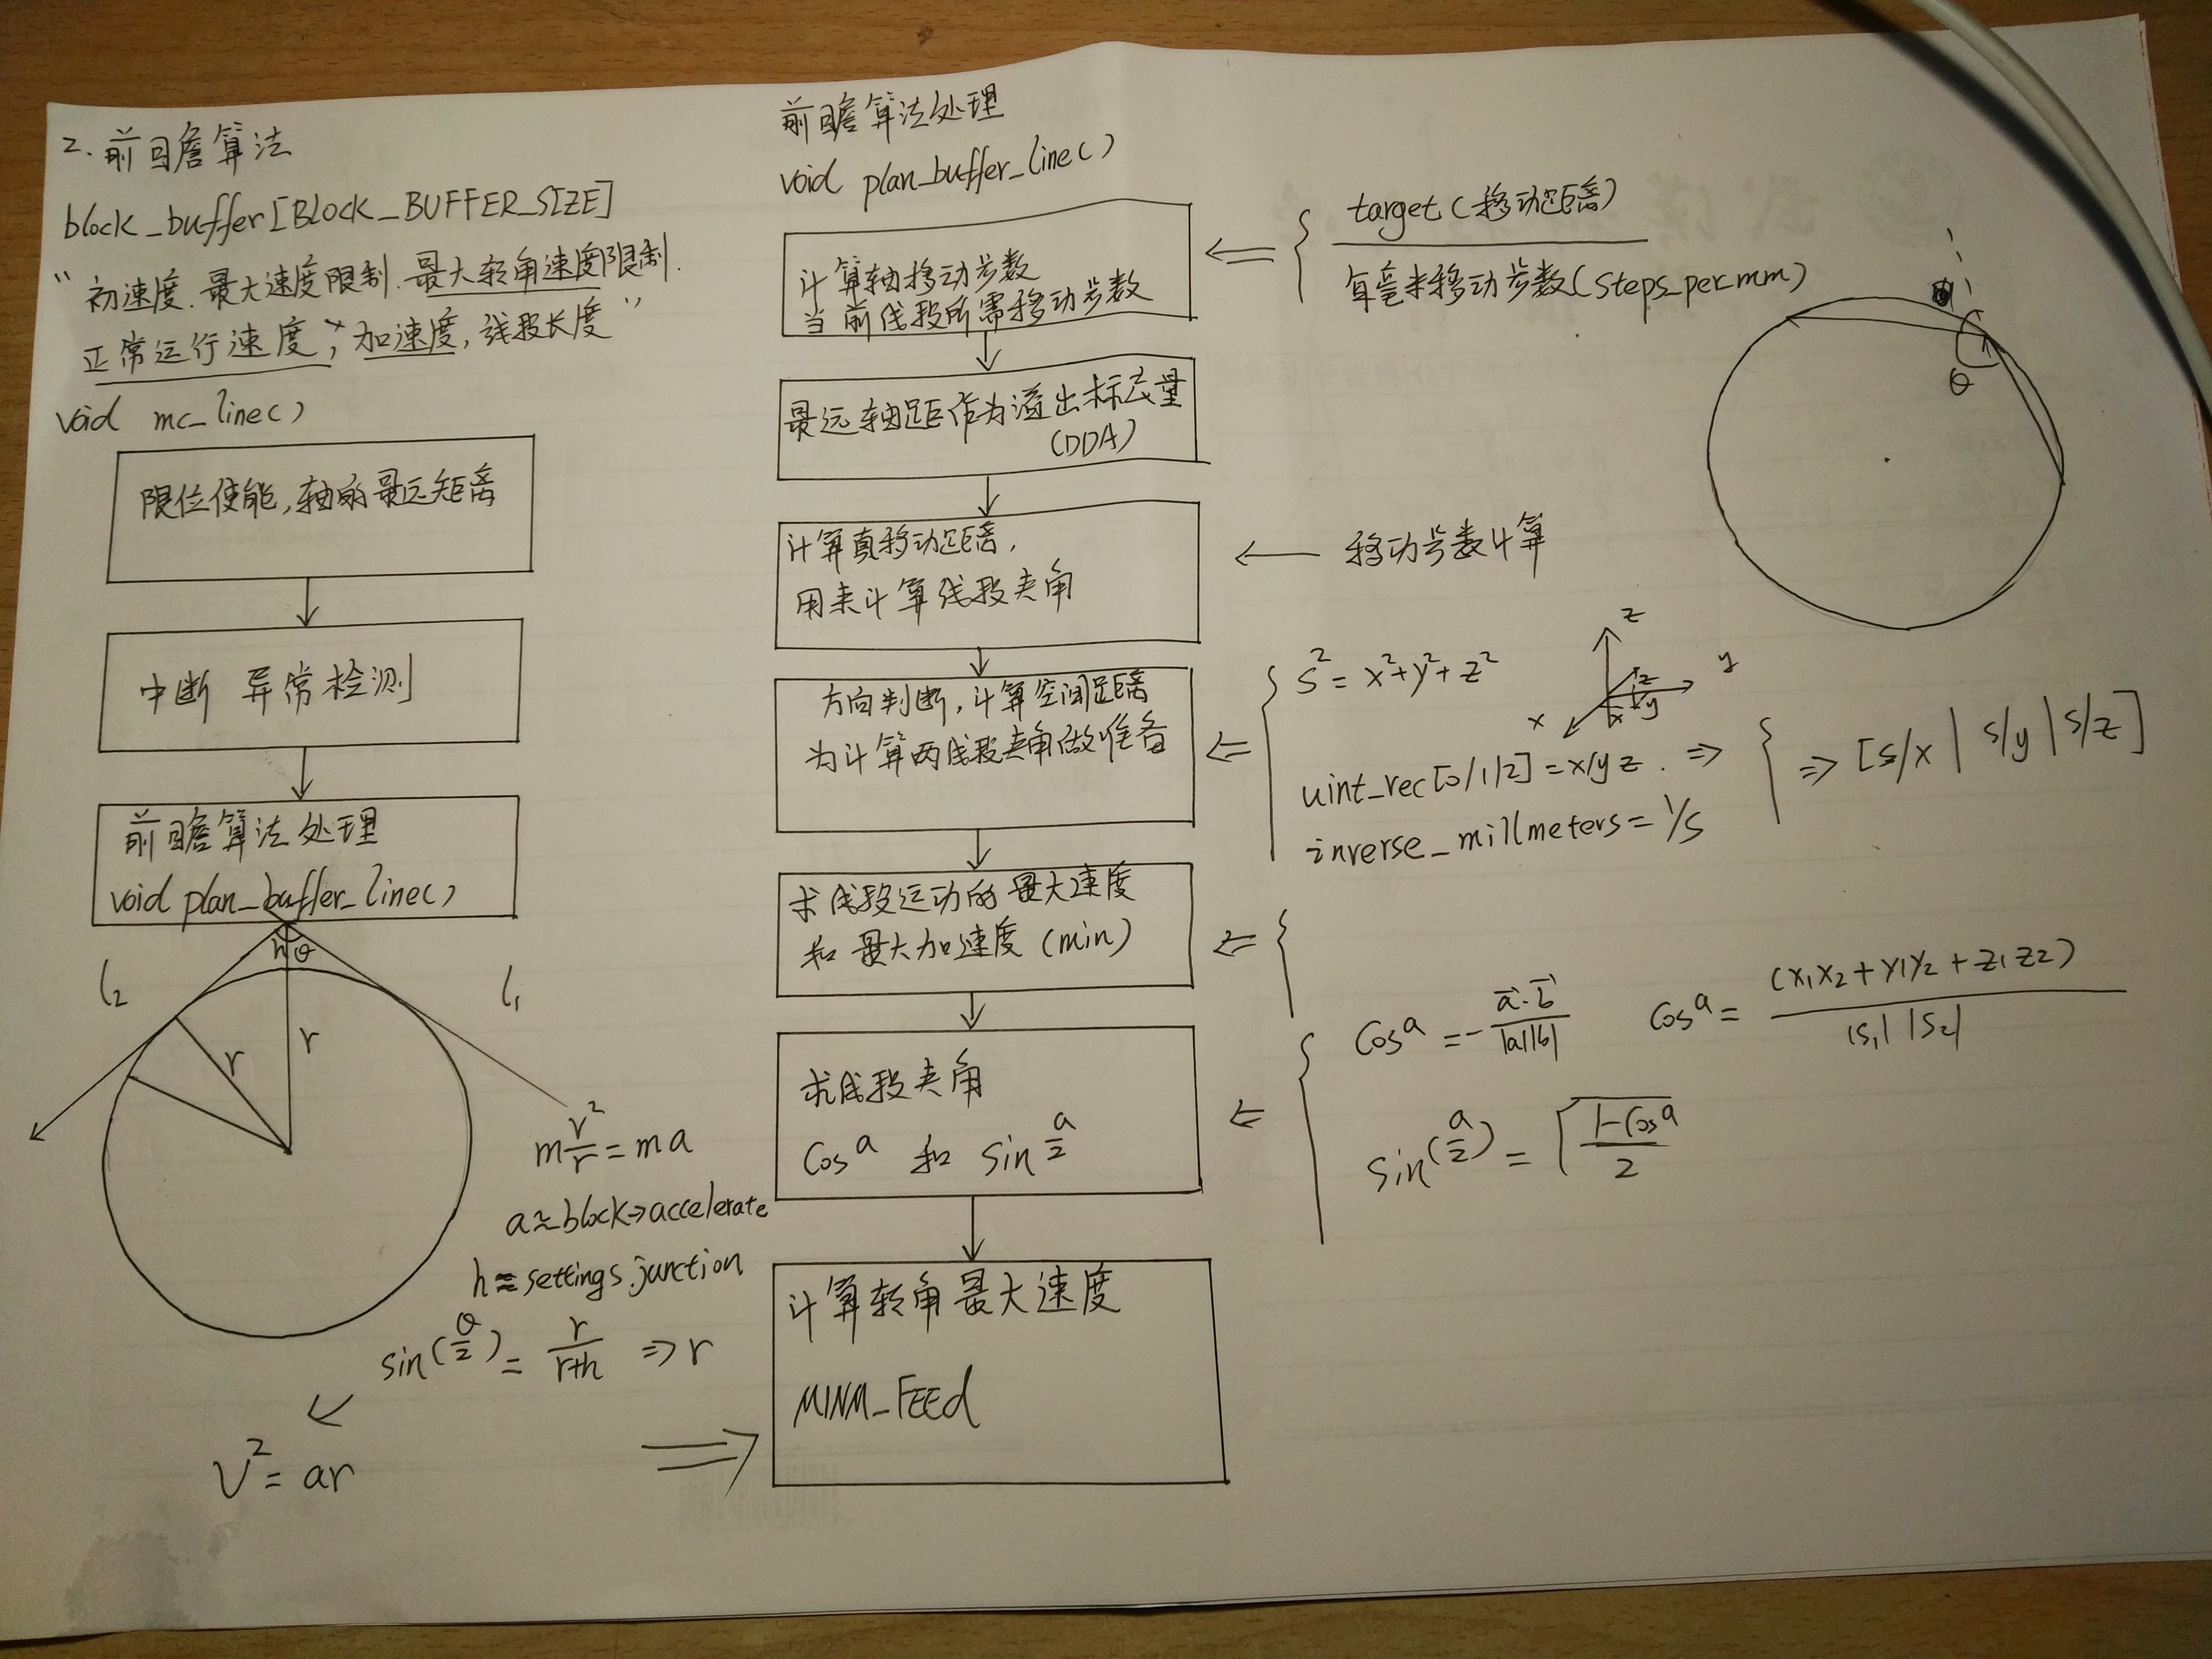 2. 前瞻算法
block_buffer[BLOCK_BUFFER_SIZE]
“初速度.最大速度限制.最大转角速度限制.
正常运行速度,加速度,线段长度”
void mc_line()
限位使能,轴的最远距离
中断 异常检测
前瞻算法处理
void plan_buffer_line()
h θ
l2
l1
r
r
m v²/r = ma
a≈block→accelerate
h≈settings.junction
sin(θ/2) = r/(r+h) ⇒ r
V² = ar
前瞻算法处理
void plan_buffer_line()
计算轴移动步数
当前线段所需移动步数
target(移动距离)
每毫米移动步数(steps_per_mm)
最远轴距作为溢出标志量
(DDA)
计算真移动距离,
用来计算线段夹角
移动步数计算
方向判断,计算空间距离
为计算两线段夹角做准备
S² = x²+y²+z²
uint_vec[0/1/2] = x/y z . ⇒
inverse_millmeters = 1/S
⇒ [S/x | S/y | S/z]
z
y
x
z
x
y
求线段运动的最大速度
和最大加速度(min)
求线段夹角
cos a 和 sin a/2
cos a = - a·b/|a||b|
cos a = (x1x2 + y1y2 + z1z2)/|S1| |S2|
sin(a/2) = √((1-cos a)/2)
计算转角最大速度
MINM_FEEd
θ